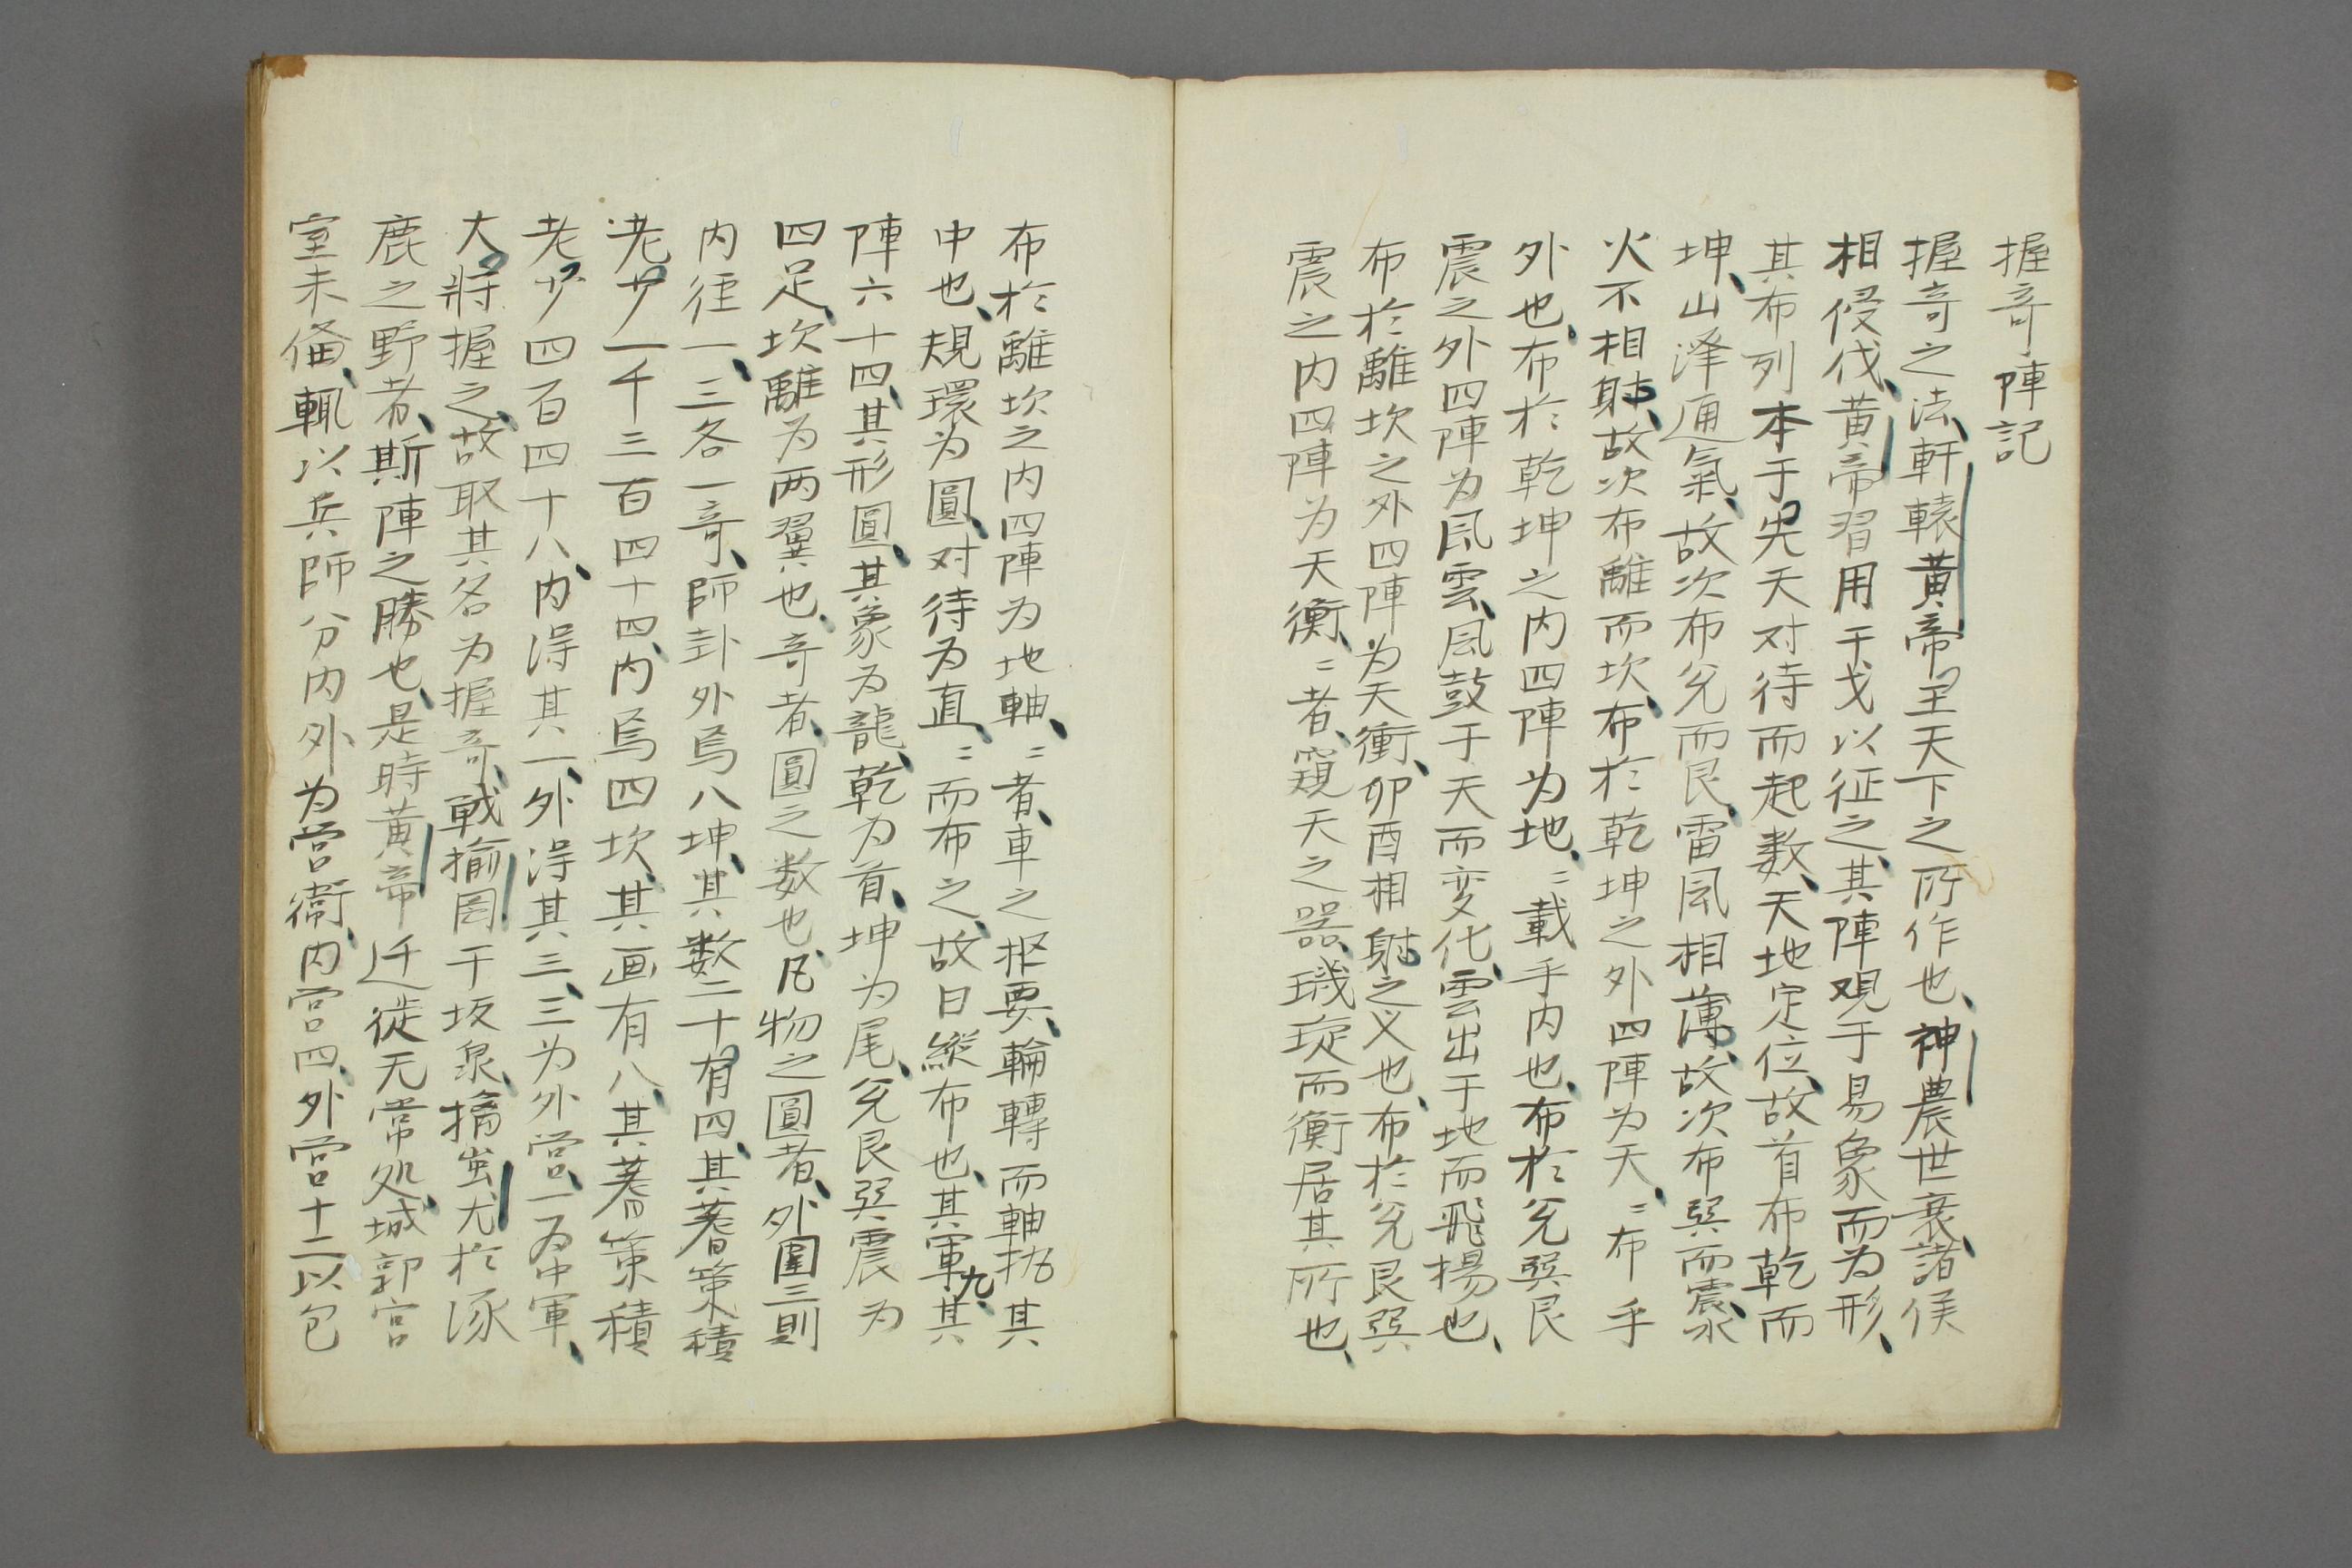 握奇陣記
握奇之法、軒轅黄帝王天下之所作也、神農世衰、諸侯
相侵伐、黄帝習用干戈以征之、其陣观于易象而为形、
其布列本于先天对待而起数、天地定位、故首布乾而
坤、山泽通氣、故次布兌而艮、雷风相薄、故次布巽而震、水
火不相射、故次布離而坎、布於乾坤之外四陣为天、〻布乎
外也、布於乾坤之内四陣为地、〻載乎内也、布於兌巽艮
震之外四陣为风雲、风鼓于天而变化、雲出于地而飛揚也、
布於離坎之外四陣为天衝、卯酉相射之义也、布於兌艮巽
震之内四陣为天衡、〻者、窺天之器、璣璇而衡居其所也、
布於離坎之内四陣为地軸、〻者、車之枢要、輪轉而軸扼其
中也、規環为圓、对待为直、〻而布之、故曰縱布也、其軍九、其
陣六十四、其形圓、其象为龍、乾为首、坤为尾、兌艮巽震为
四足、坎離为两翼也、奇者、圓之数也、凡物之圓者、外圍三則
内徑一、三各一奇、師卦外爲八坤、其数二十有四、其蓍策積
老少一千三百四十四、内爲四坎、其画有八、其蓍策積
老少四百四十八、内得其一、外得其三、三为外营、一为中軍、
大將握之、故取其名为握奇、戰揄罔于坂泉、擒蚩尤於涿
鹿之野者、斯陣之勝也、是時黄帝迁徙无常处、城郭宫
室未備、輒以兵師分内外为营衛、内营四、外营十二以包